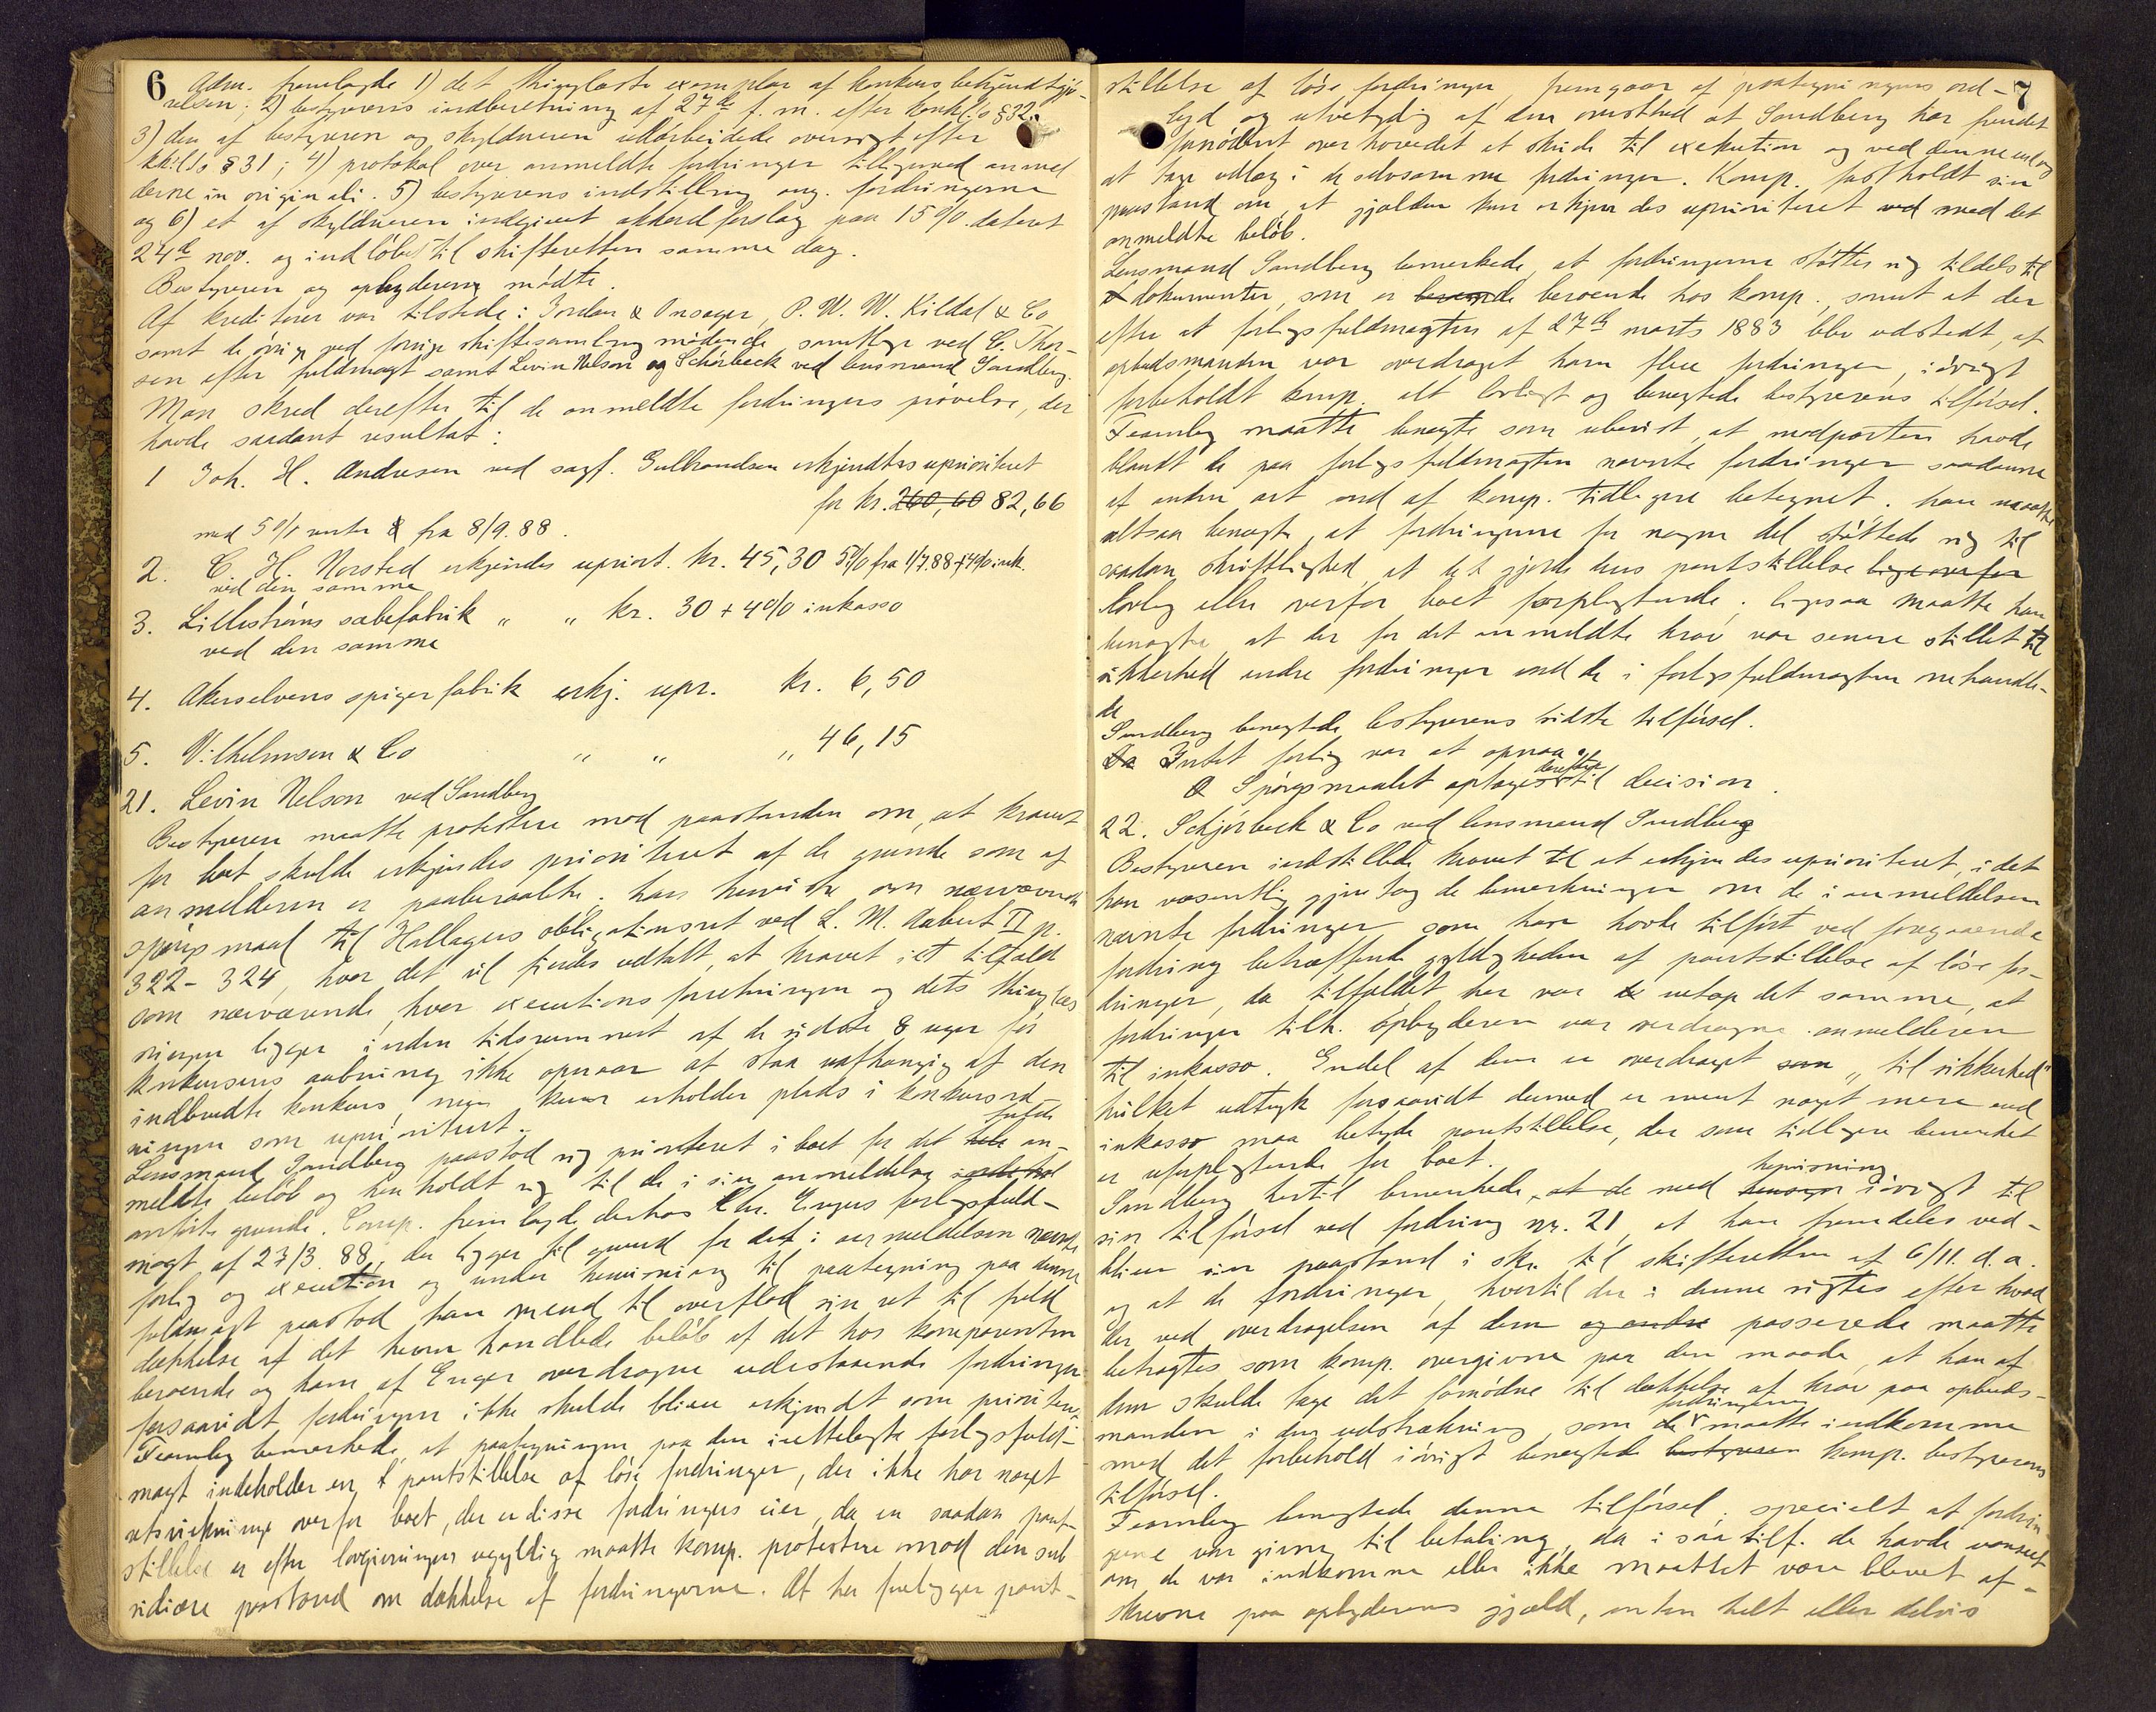 6
Adm. fremlagde 1) det thinglæste exemplar af konkursbekjendtgjø-
relsen; 2) bestyrerens indberetning af 27de f. m. efter konkl. §32.
3) den af bestyreren og skyldneren udarbeidede oversigt efter
§31; 4) protokol over anmeldte fordringer tilligemed anmel
derne in originali. 5) bestyrerens indstilling ang. fordringerne
og 6) et af skyldneren indgivet akkordforslag paa 15 % dateret
24de nov. og indløbet til skifteretten samme dag.
Bestyreren og opbyderen mødte.
Af kreditorer var tilstede: Jordan & Onsager, P. W. W. Kildal & Co
samt de øvrige ved forrige skiftesamling mødende samtlige ved C. Thor-
sen efter fuldmagt samt Levin Nelson og Schørbeck ved lensmand Sandberg.
Man skred derefter til de anmeldte fordringers prøvelse, der
havde saadant resultat:
1 Joh. H. Andresen ved sagf. Gulbrandsen erkjendtes uprioriteret
for kr. 260,60 82,66
med 5 % rente fra 8/9. 88.
2. C. H. Norsted erkjendes upriort. kr. 45,30 5% fra 1/7.88 + 4% ink.
ved den samme
3. Lillestrøms sæbefabrik " " kr. 30 + 4% inkasso
ved den samme
4. Akerselvens spigerfabrik erkj. upr. kr. 6,50
5. Vilhelmsen & Co " " " 46,15
21. Levin Nelson ved Sandberg
Bestyreren maatte protestere mod paastanden om, at kravet
for boet skulde erkjendes prioriteret af de grunde som af
anmelderen er paaberaabte. han henviste om nærværende
spørgsmaal til Hallagers obligationsret ved L. M. Aubert II p.
322-324, hvor det vil findes udtalt, at kravet i et tilfald
som nærværende, hvor executionsforretningen og dets thinglæs
ningen ligger inden tidsrummet af de sidste 8 uger før
konkursens aabning ikke opnaar at staa uafhængig af den
indtrædte konkurs, men kun erholder plads i konkursord
ningen som uprioritert.
Lensmand Sandberg paastod sig prioriteret i boet for det hele fulde an-
meldte beløb og henholdt sig til de i sin anmeldelse indehol
anførte grunde. Comp. fremlagde derhos Chr. Engers forligsfuld-
magt af 27/3. 88, der ligger til grund for det i anmeldelsen nævnte
forlig og execution og under henvisning til paategning paa denne
fuldmagt paastod han end til overflod sin ret til fuld
dækkelse af det heromhandlede beløb af det hos komparenten
beroende og ham af Enger overdragne udestaaende fordringer
forsaavidt fordringen ikke skulde blive erkjendt som prioriteret.
Fearnley bemerkede, at paategningen paa den irettelagte forligsfuld-
magt indeholder en pantstillelse af løse fordringer, der ikke har noget
retsvirkning overfor boet, der er disse fordringers eier, da en saadan pant-
stillelse er efter lovgivningen ugyldig maatte komp. protestere mod den sub
sidiære paastand om dækkelse af fordringerne. At her foreligger pant-
7
stillelse af løse fordringer, fremgaar af paategningens ord-
lyd og utvetydig af den omstænd at Sandberg har fundet
fornødent overhovedet at skride til exekution og ved denne endog
at tage udlæg i de selvsamme fordringer. Komp. fastholdt sin
paastand om, at gjælden kun erkjendes uprioriteret ved med det
anmeldte beløb.
Lensmand Sandberg bemerkede, at fordringerne støttes sig tildels til
dokumenter, som er beroende beroende hos komp., samt at der
efter at forligsfuldmagten af 27de marts 1883 blev udstedt, af
opbudsmanden var overdraget ham flere fordringer, iøvrigt
forbeholdt komp. alt lovligt og benegtede bestyrerens tilførsel.
Fearnley maatte benegte som ubevist, at modparten havde
blandt de paa forligsfuldmagten nævnte fordringer saadanne
af anden art end af komp. tidligere betegnet. han maatte
altsaa benegte, at fordringerne for nogen del støttede sig til
saadan skriftlighed, at det gjorde hans pantstillelse ligeoverfor
lovlig eller overfor boet forpligtende. ligesaa maatte han
benegte, at der for det anmeldte krav var senere stillet til
sikkerhed andre fordringer end de i forligsfuldmagten omhandle-
de
Sandberg benegtede bestyrerens sidste tilførsel.
Da Intet forlig var at opnaa.
Spørgsmaalet optages derefter til decision.
22. Schjørbeck & Co ved lensmand Sandberg
Bestyreren indstillede kravet til at erkjendes uprioriteret, idet
han væsentlig gjentog de bemerkninger om de i anmeldelsen
nævnte fordringer som han havde tilført ved foregaaende
fordring betræffende gyldigheden af pantstillelse af løse for-
dringer, da tilfældet her var netop det samme, at
fordringer tilh. opbyderen var overdragne anmelderen
til inkasso. Endel af dem er overdraget som "til sikkerhed"
hvilket udtryk forsaavidt dermed er ment noget mere end
inkasso maa betyde pantstillelse, der som tidligere bemerket
er uforpligtende for boet.
Sandberg hertil bemerkede, at de med hensyn henvisning iøvrigt til
sin tilførsel ved fordring nr. 21, at han fremdeles ved-
bliver sin paastand i skr. til skifteretten af 6/11. d. a.
og at de fordringer, hvortil der i denne sigtes efter hvad
der ved overdragelsen af dem og andre passerede maatte
betragtes som komp. overgivne paa den maade, at han af
dem skulde tage det fornødne til dækkelse af krav paa opbuds-
manden i den udstrækning, som de fordringerne maatte indkomme
med det forbehold iøvrigt benegtede bestyreren komp. bestyrerens
tilførsel.
Fearnley benegtede denne tilførsel. specielt at fordrin-
gene var givne til betaling, da i saa tilf. de havde uanseet
om de var indkomne eller ikke maattet være blevet af-
skrevne paa opbyderens gjæld, enten helt eller delvis